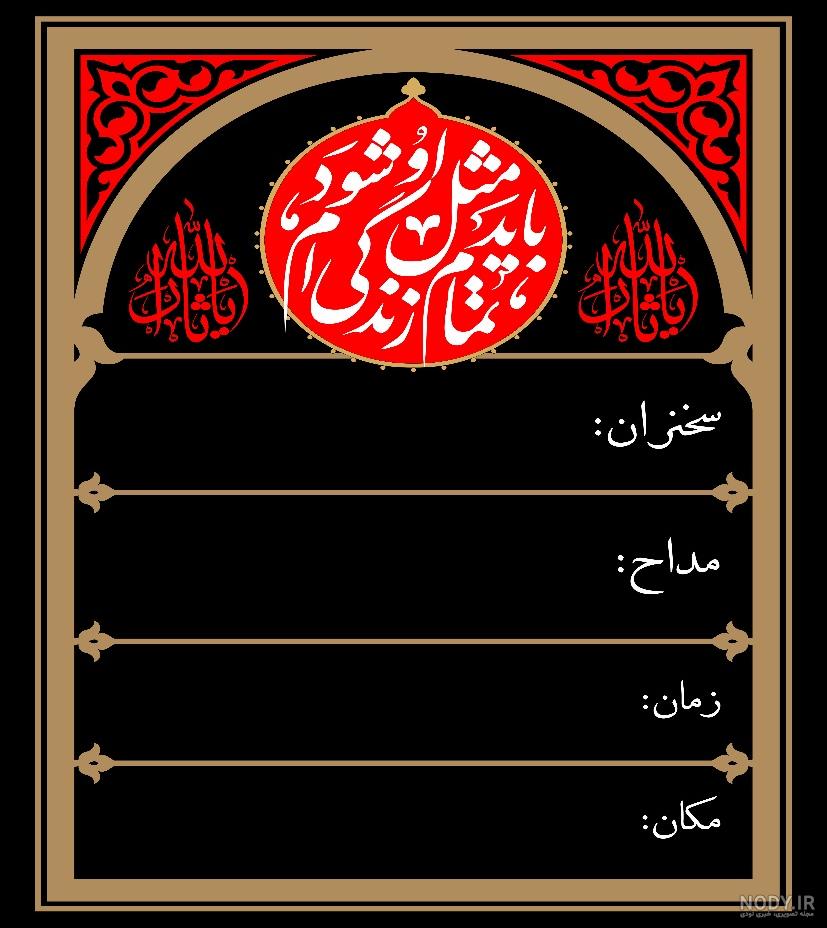 باید مثل او شود
تمام زندگی ام
یا ثارالله
یا ثارالله
سخنران:
مداح:
زمان:
مکان:
NODY.IR
مجله تصویری، خبری نودی